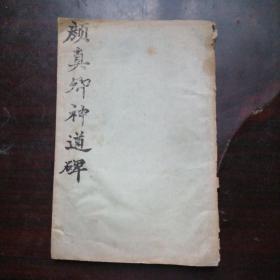 顔真卿神道碑